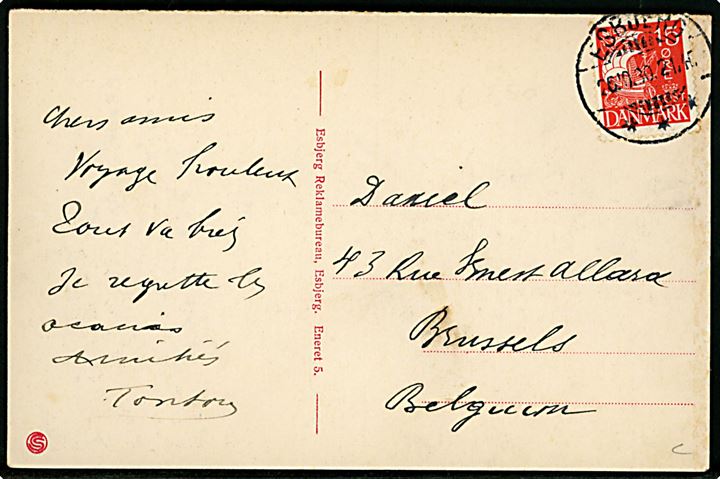 chers amis
Voyage
Tout va bien
Je regrette les
Amitiés
Tonton
Esbjerg Reklamebureau, Esbjerg. Eneret 5.
ESBJERG
15
ØRE
DANMARK
Daniel
43 Rue Ernest Allard
Brussels
Belgium